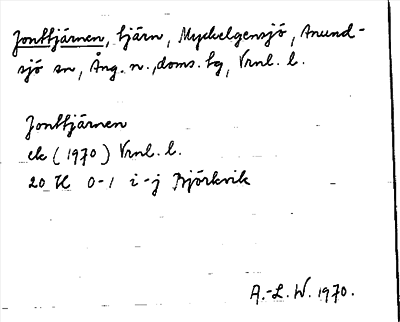 Jonttjärnen, tjärn, Myckelgensjö, Anund-
sjö sn, Ång. n., doms. bg, Vrnl. l.
Jonttjärnen
ek (1970) Vrnl. l.
20 H 0-1 i-j Björkvik
A.-L. W. 1970.